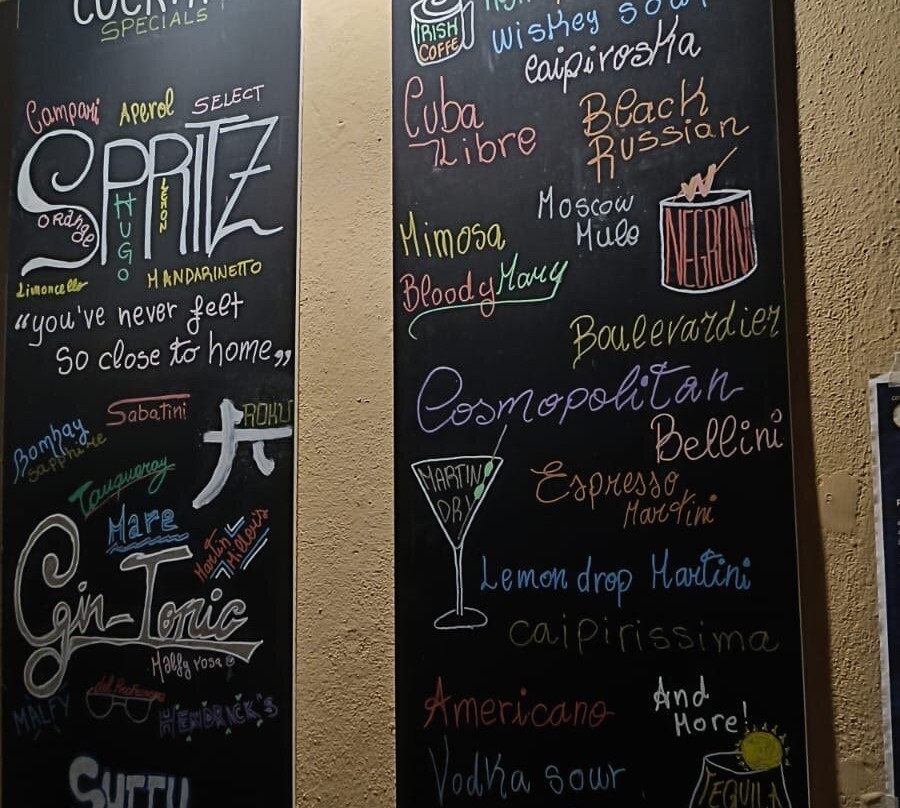 SPECIALS
Campari
Aperol
SELECT
SPRITZ
Orange
HUGO
LEMON
Limoncello
MANDARINETTO
“you've never felt
so close to home„
Sabatini
ROKU
六
Bombay
Sapphire
Tanqueray
Mare
Gin-Tonic
Malfy rosa
MALFY
HENDRICK'S
IRISH
COFFE
Wiskey sour
Caipiroska
Cuba
Libre
Black
Russian
Moscow
Mule
NEGRONI
Mimosa
Bloody Mary
Boulevardier
Cosmopolitan
Bellini
MARTINI
DRY
Espresso
Martini
Lemon drop Martini
caipirissima
Americano
And
More!
Vodka sour
TEQUILA